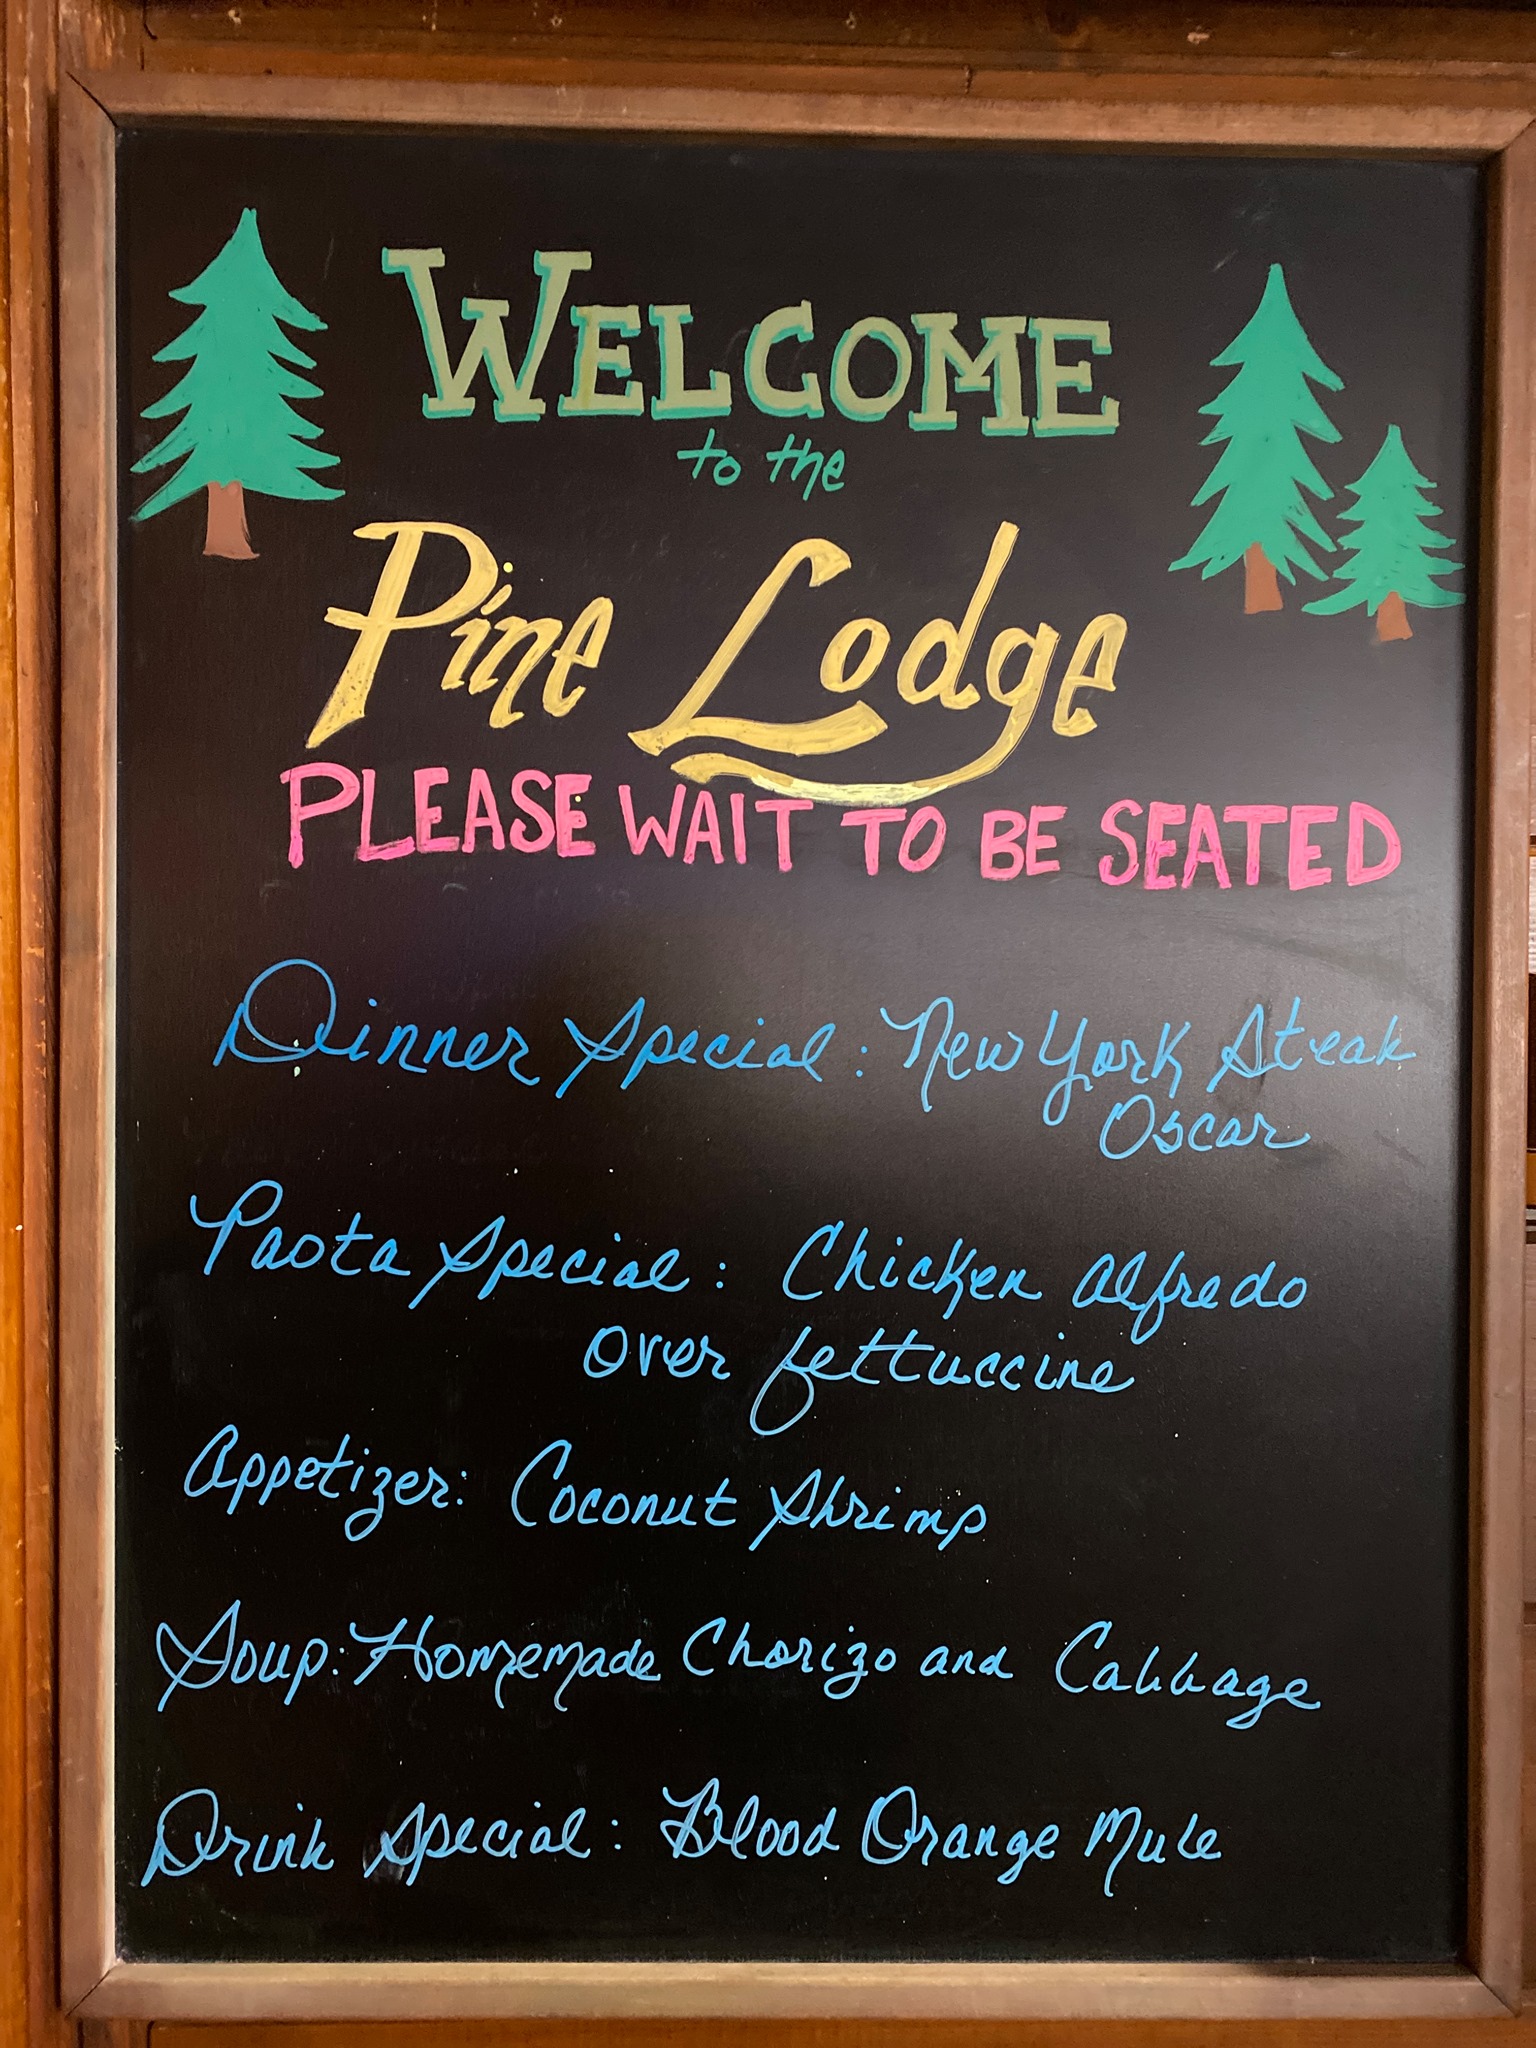 WELCOME
to the
Pine Lodge
PLEASE WAIT TO BE SEATED
Dinner Special: New York Steak
Oscar
Pasta Special: Chicken Alfredo
over fettuccine
Appetizer: Coconut Shrimp
Soup: Homemade Chorizo and Cabbage
Drink Special: Blood Orange Mule